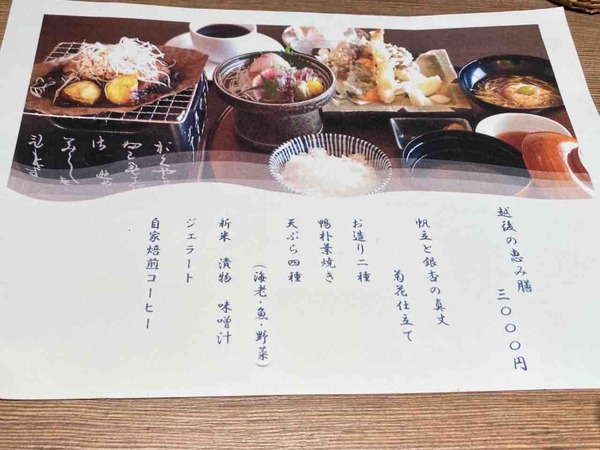 越後の恵み膳　三〇〇〇円
帆立と銀杏の真丈
菊花仕立て
お造り二種
鴨朴葉焼き
天ぷら四種
（海老・魚・野菜）
新米　漬物　味噌汁
ジェラート
自家焙煎コーヒー